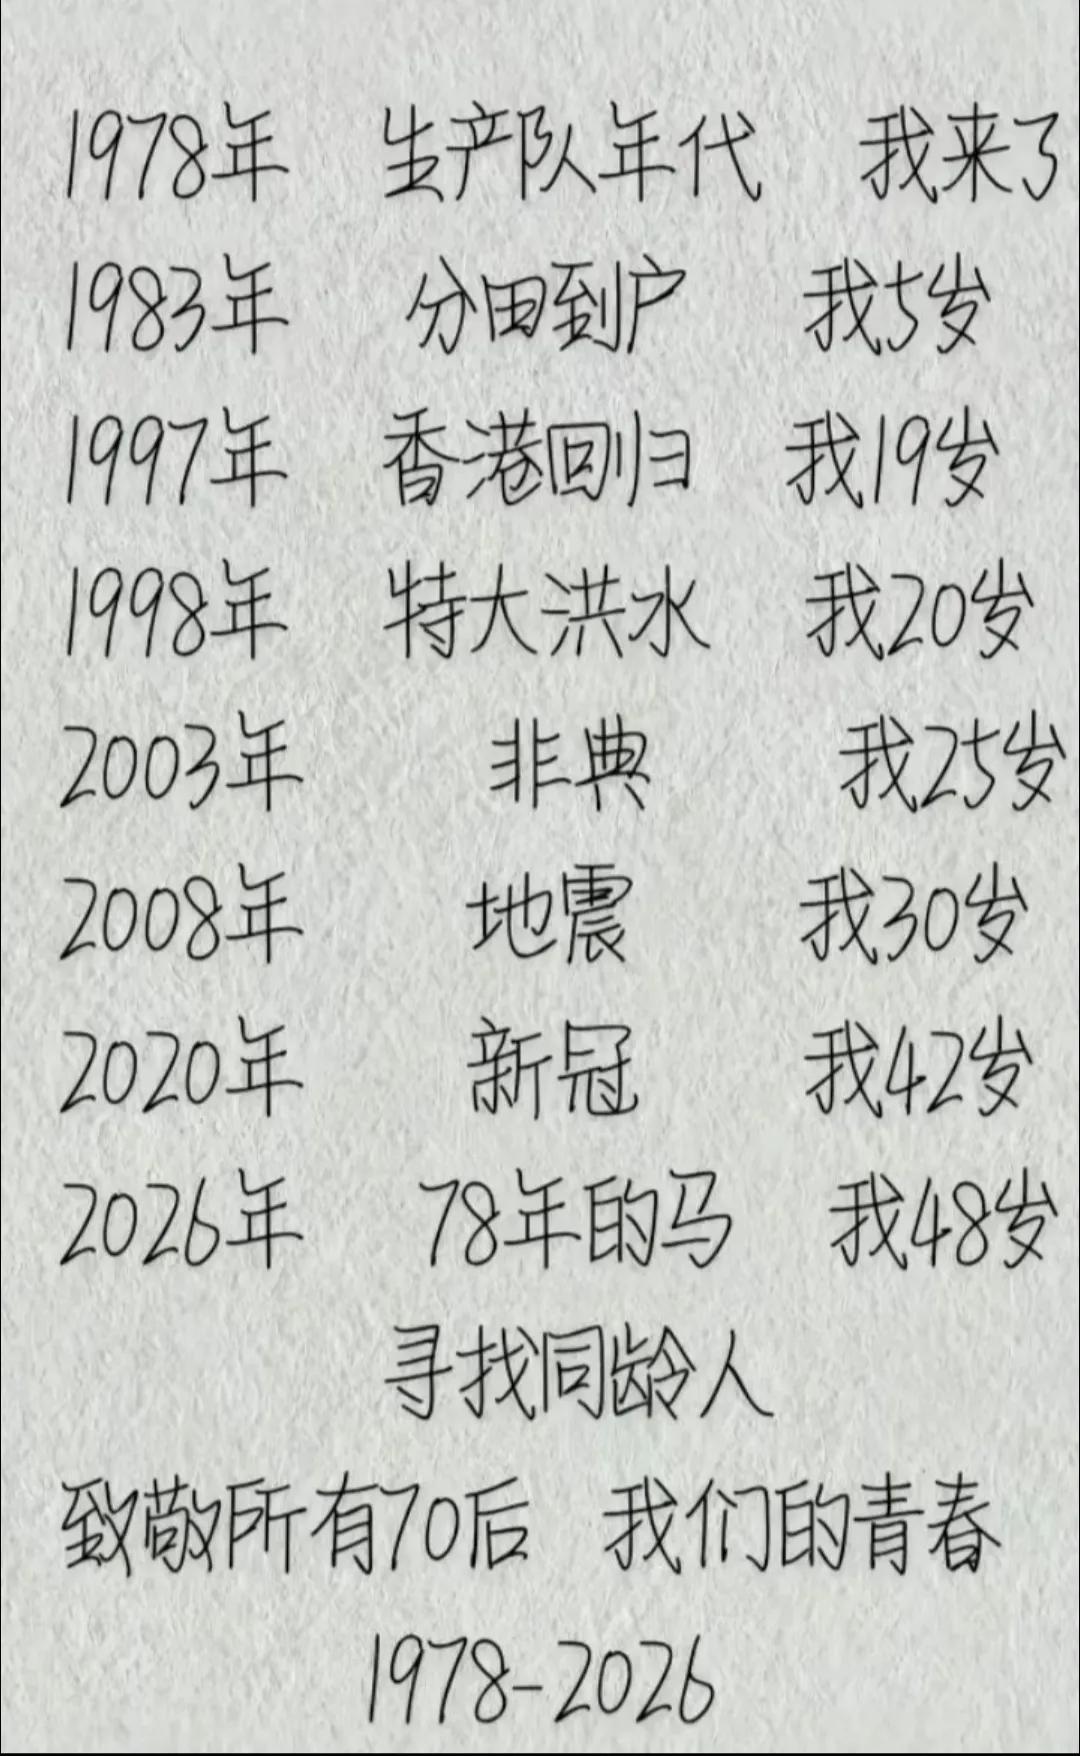 1978年 生产队年代 我来了
1983年 分田到户 我5岁
1997年 香港回归 我19岁
1998年 特大洪水 我20岁
2003年 非典 我25岁
2008年 地震 我30岁
2020年 新冠 我42岁
2026年 78年的马 我48岁
寻找同龄人
致敬所有70后 我们的青春
1978-2026